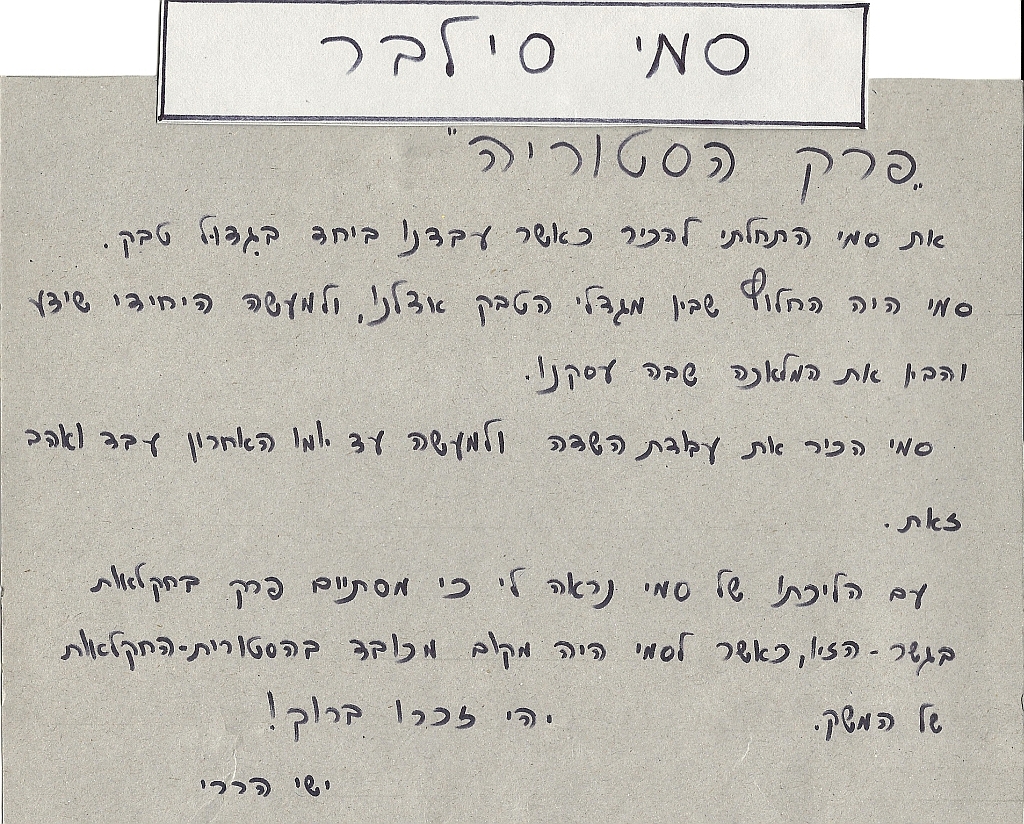 סמי סילבר
"פרק הסטוריה"
את סמי התחלתי להכיר כאשר עבדנו ביחד בגדול טבק.
סמי היה החלוץ שבין מגדלי הטבק אצלנו, ולמעשה היחידי שידע
והבין את המלאכה שבה עסקנו.
סמי הכיר את עבודת השדה ולמעשה עד יומו האחרון עבד ואהב
זאת.
עם הליכתו של סמי נראה לי כי מסתיים פרק בחקלאות
בגשר-הזיו, כאשר לסמי היה מקום מכובד בהסטורית-החקלאות
של המשק. יהי זכרו ברוך!
ישי הררי